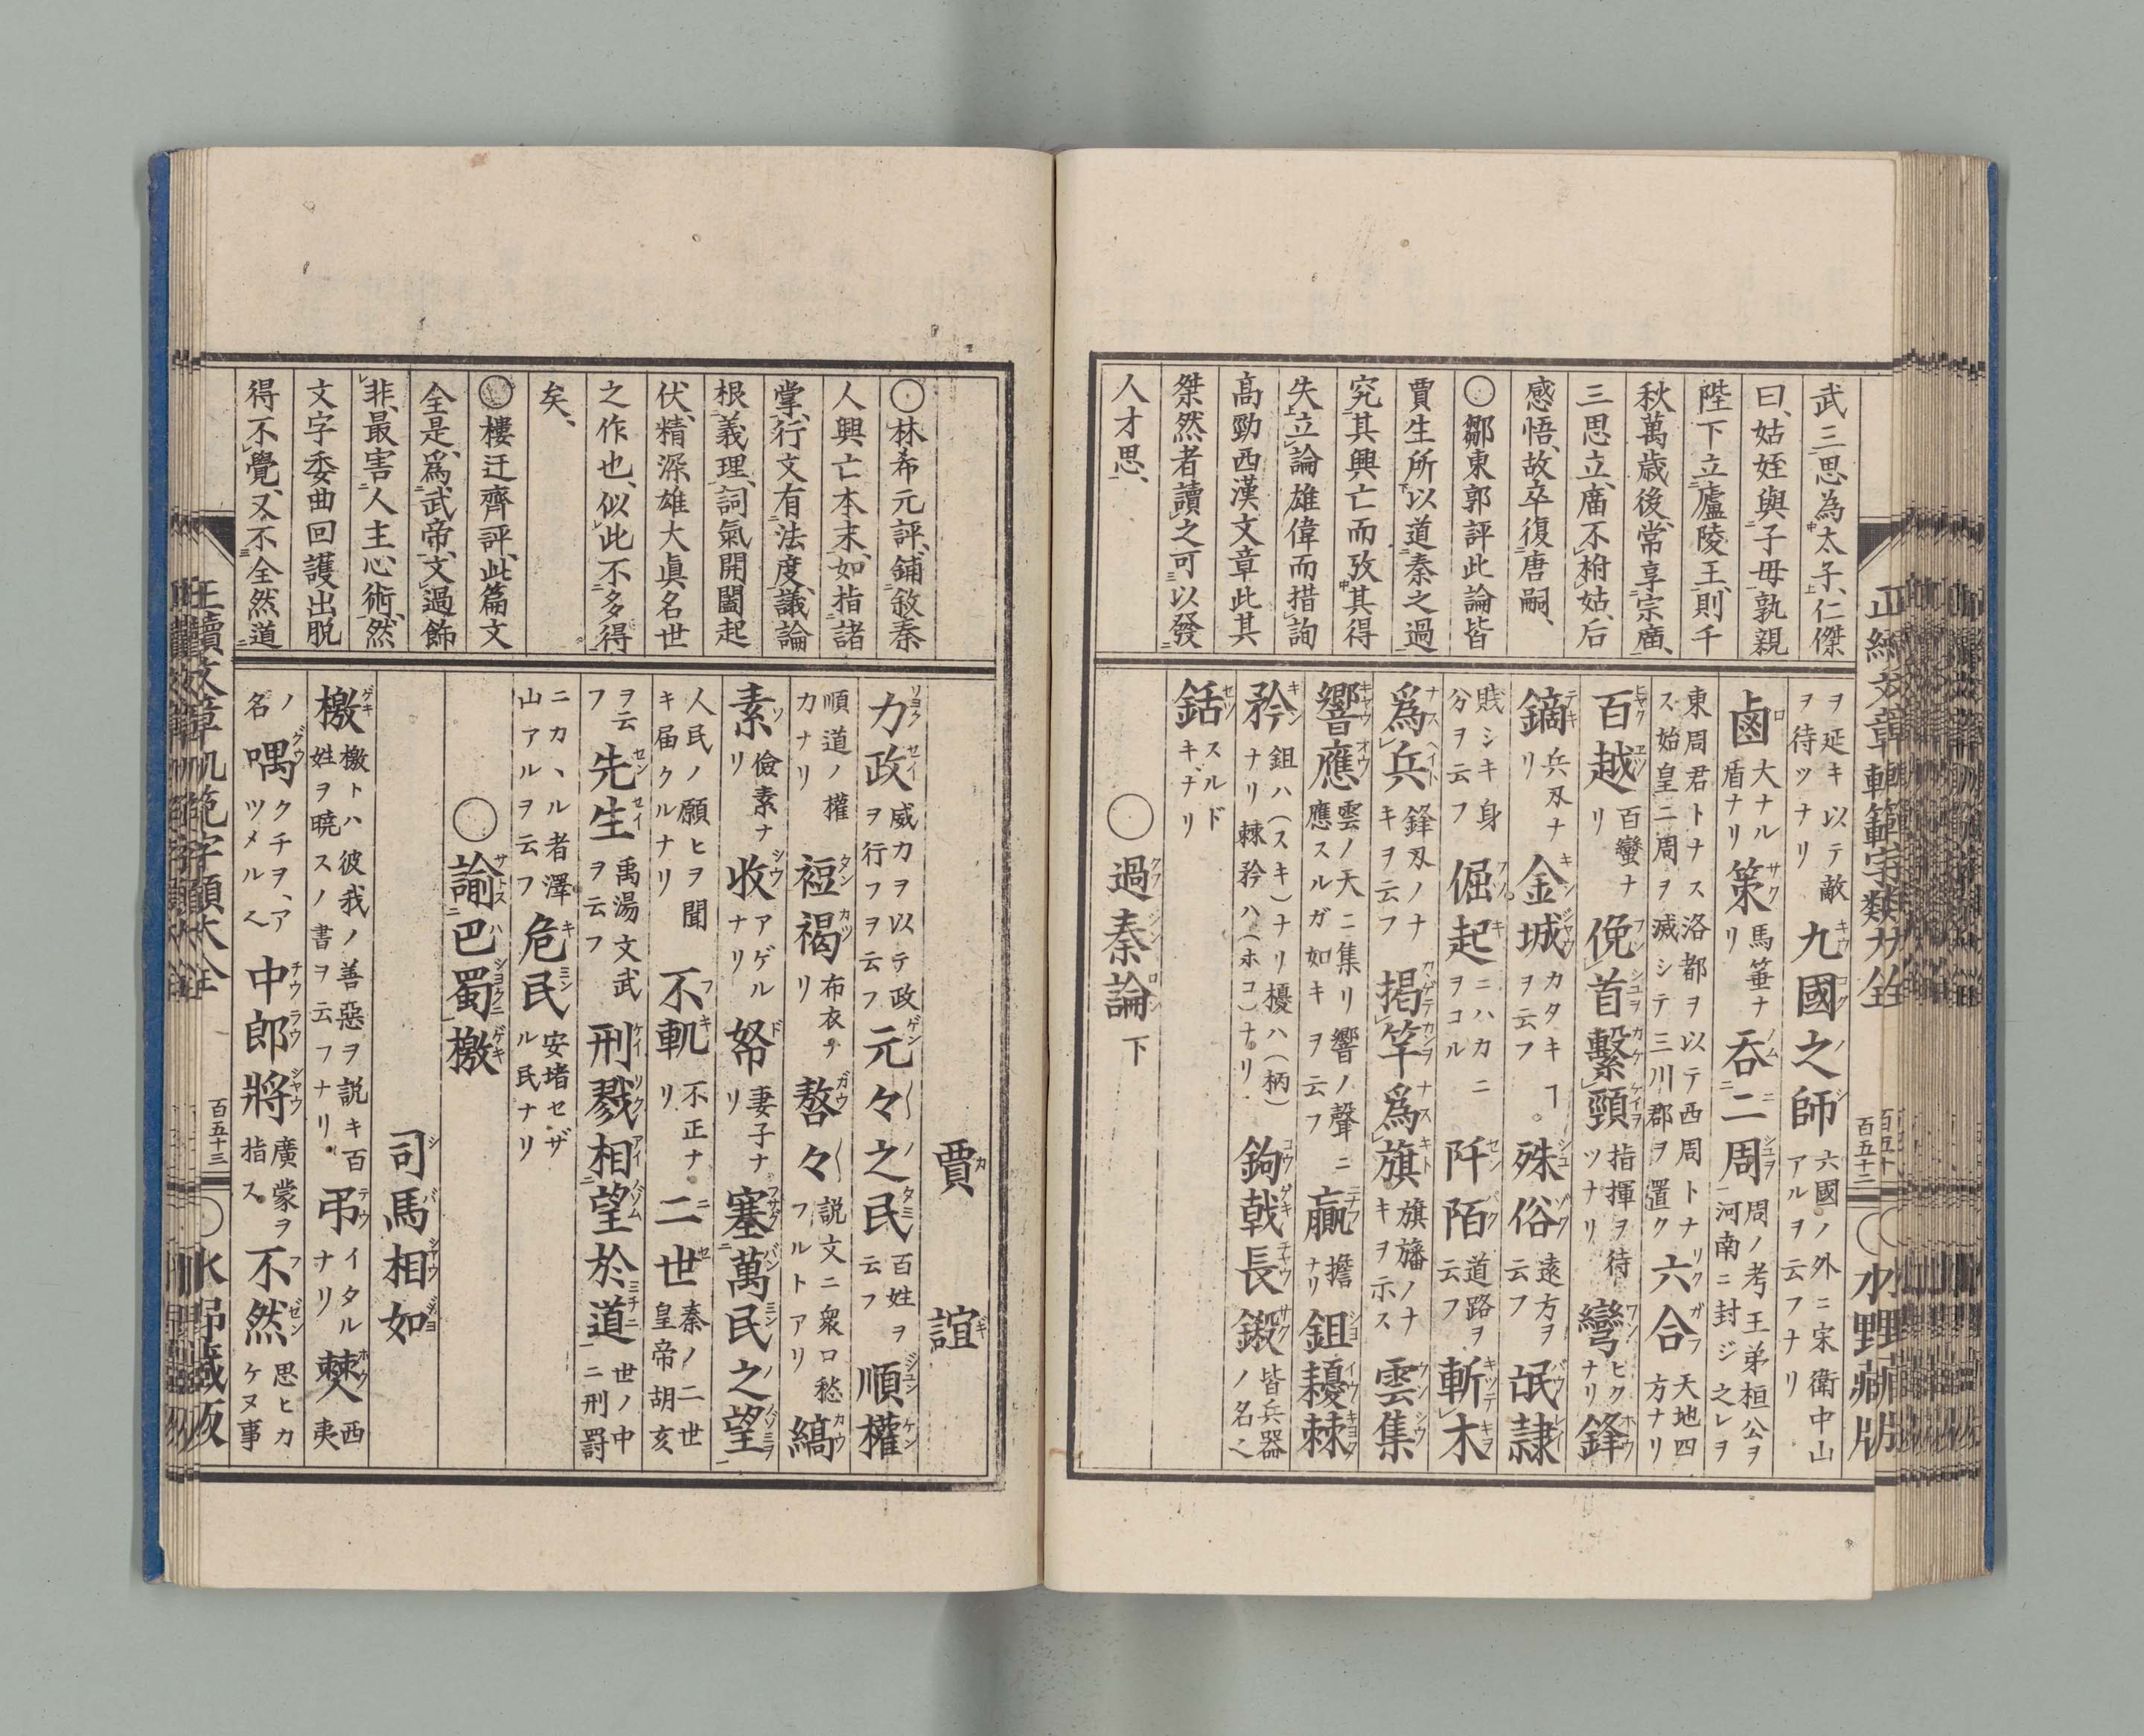 武三思為太子、仁傑
曰、姑姪與子母孰親
陛下立廬陵王、則千
秋萬歳後、常享宗廟、
三思立、廟不祔姑、后
感悟、故卒復唐嗣、
○鄒東郭評此論皆
賈生所以道秦之過
究其興亡而攷其得
失立論雄偉而措詞
高勁西漢文章此其
傑然者讀之可以發
人才思、
ヲ延キ以テ敵
ヲ待ツナリ
九國之師 六國ノ外ニ宋衛中山
アルヲ云フナリ
鹵 大ナル
盾ナリ
策 馬箠ナ
リ
呑二周 周ノ考王弟桓公ヲ
河南ニ封ジ之レヲ
東周君トナス洛都ヲ以テ西周トナ
ス始皇ニ周ヲ滅シテ三川郡ヲ置ク
六合 天地四
方ナリ
百越 百蠻ナ
リ
俛首繫頸 指揮ヲ待
ツナリ
彎 ヒク
ナリ
鋒
鏑 兵刄ナ
リ
金城 カタキヿ
ヲ云フ
殊俗 遠方ヲ
云フ
氓隷
賎シキ身
分ヲ云フ
倔起 ニハカニ
ヲコル
阡陌 道路ヲ
云フ
斬木
爲兵 鋒刄ノナ
キヲ云フ
揭竿爲旗 旗旛ノナ
キヲ示ス
雲集
響應 雲ノ天ニ集リ響ノ聲ニ
應スルガ如キヲ云フ
贏 擔
ナリ
鉏耰棘
矜 鉏ハ(スキ)ナリ耰ハ(柄)
ナリ棘矜ハ(ホコ)ナリ
鉤戟長鎩 皆兵器
ノ名之
銛 スルド
キナリ
○過秦論下
水野藏版
百五十二
○林希元評、鋪敘秦
人興亡本末、如指諸
掌、行文有法度、議論
根義理、詞氣開闔起
伏、精深、雄大眞名世
之作也、似此不多得
矣、
◎樓迂齊評、此篇文
全是、爲武帝、文過飾
非、最害人主心術、然
文字委曲回護出脱
得不覺、又不全然道
賈誼
力政 威力ヲ以テ政
ヲ行フヲ云フ
元々之民 百姓ヲ
云フ
順權
順道ノ權
力ナリ
裋褐 布衣ナ
リ
嗸々 説文ニ衆口愁
フルトアリ
縞
素 儉素ナ
リ
收 アゲル
ナリ
帑 妻子ナ
リ
塞萬民之望
人民ノ願ヒヲ聞
キ届クルナリ
不軌 不正ナ
リ
二世 秦ノ二世
皇帝胡亥
ヲ云
フ
先生 禹湯文武
ヲ云フ
刑戮相望於道 世ノ中
ニ刑罸
ニカヽル者澤
山アルヲ云フ
危民 安堵セザ
ル民ナリ
○諭巴蜀檄
司馬相如
檄 檄トハ彼我ノ善惡ヲ説キ百
姓ヲ曉スノ書ヲ云フナリ
弔 イタル
ナリ
僰 西
夷
ノ
名
喁 クチヲ、ア
ツメルヘ
中郎將 廣蒙ヲ
指ス
不然 思ヒカ
ケヌ事
百五十三